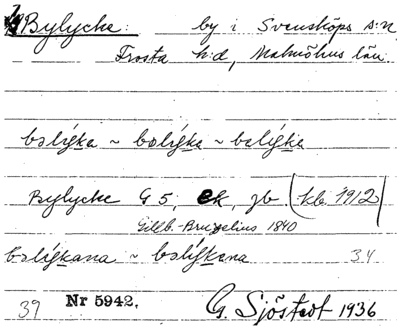 Bylycke: by i Svensköps s:n
Frosta h:d, Malmöhus län.
bəlýka ~ bølýka ~ belýka
Bylycke G 5, ek, jb (kbl. 1912)
Gillb.-Bruzelius 1840
bəlýkana ~ bəlýkena 34
39 Nr 5942. G. Sjöstedt 1936